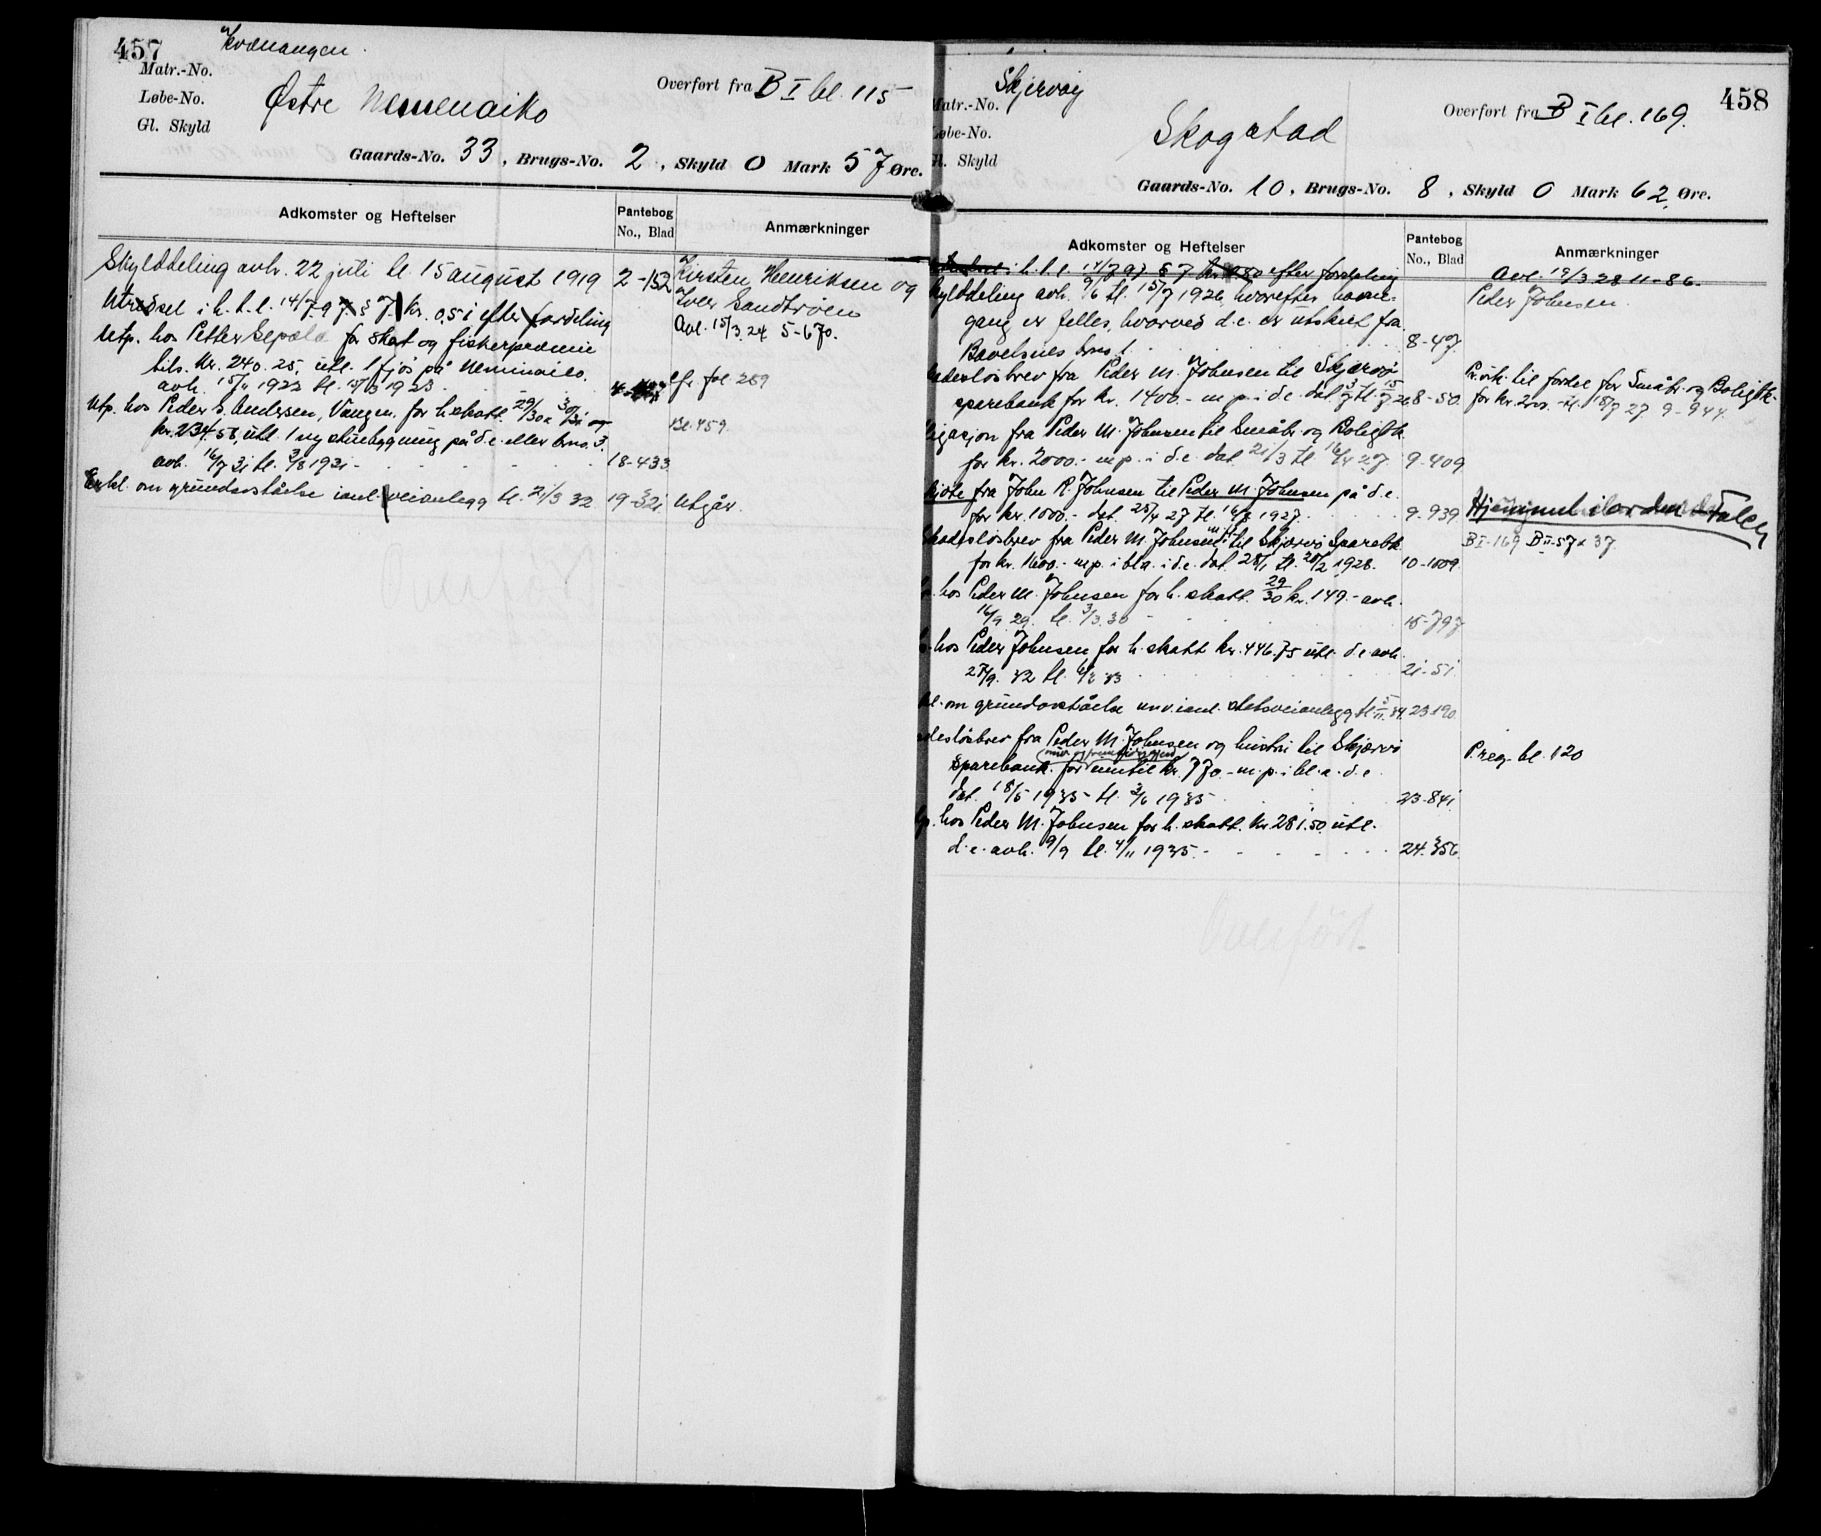 457
Kvænangen
Matr.-No.
Løbe-No.
Gl. Skyld
Østre Nemenaiko
Overført fra B I bl. 115
Gaards-No. 33, Brugs-No. 2, Skyld 0 Mark 57 Øre.
Adkomster og Heftelser
Pantebog
No., Blad
Anmærkninger
Skylddeling avh. 22 juli tl. 15 august 1919 2-152
Kirsten Henriksen og
Iver Sandtrøen
Avl. 15/3 24 5-670.
Utredsel i h. t. l. 14/7 97 § 7 kr. 0,51 efter fordeling
Utp. hos Petter Seppälä for skat og fiskerpræmie
tils. Kr. 240.25, utl. 1 fjøs på
avh. 15/11 1922 tl. 15/3 1923
cfr. fol 259
Utp. hos Peder S. Andersen, Vangen, for h. skatt 29/30 30/31 og
kr. 234.58, utl. 1 ny stuebygning på d.e. eller brno. 3.
avh. 16/7 31 tl. 3/8 1931 - 18-433
Bl. 459.
Erkl. om grundavståelse ianl. veianlegg tl. 21/3 32 19-321 Utgår.
Overført
458
Skjervøy
Matr.-No.
Løbe-No.
Gl. Skyld
Skogstad
Overført fra B I bl. 169.
Gaards-No. 10, Brugs-No. 8, Skyld 0 Mark 62, Øre.
Adkomster og Heftelser
Pantebog
No., Blad
Anmærkninger
i h. t. l. 14/7 97 § 7 kr. efter fordeling
Avl. 19/3 28 11-86.
kylddeling avh. 9/6 tl. 15/7 1926, hvorefter havne-
Peder Johnsen.
gang er felles, hvorved d.e. er utskilt fra
brno 1. 8-47.
adesløsbrev fra Peder M. Johnsen til Skjærvø
sparebank for kr. 1400.- m.p. i d.e. dat 3/7 tl. 15/7 26 8-50.
Pr.vik. til fordel for Småbr. og Boligbk.
for kr. 2000.- tl. 18/7 27 9-944.
ligasjon fra Peder M. Johnsen til Småbr. og Boligbk
for kr. 2000.- m.p. i d.e. dat. 21/3 tl. 16/4 27. 9-409
kjøte fra John R. Johnsen til Peder M. Johnsen på d.e.
for kr. 1000.- dat. 25/4 27 tl. 16/7 1927. 9-939
Hjemmel
B I-169 B II-57 x 37.
Skadesløsbrev fra Peder M. Johnsen m.fl. til Skjærvø Sparebk.
for kr. 1600.- m.p. i bl.a. i d.e. dat. 28/1 tl. 28/2 1928. 10-1009.
p. hos Peder M. Johnsen for h. skatt. 29/30 kr. 149.- avh.
16/9 29. tl. 3/3 30 - 15-797
p. hos Peder Johnsen for h. skatt kr. 446.75 utl. d.e. avh.
27/9. 32 tl. 33 21-51
kl. om grundavståelse unv. ianl. statsveianlegg tl. 5/11 34. 23.190.
adesløsbrev fra Peder M. Johnsen og hustru til Skjærvø
P.reg. bl. 120
sparebank. for inntil kr. 770.- m.p. i bl.a. d.e.
dat. 18/5 1935 tl. 3/6 1935 23-841
p. hos Peder M. Johnsen for h. skatt. kr. 281.50 utl.
d.e. avh. 9/9 tl. 4/11 1935. - 24.356.
Overført